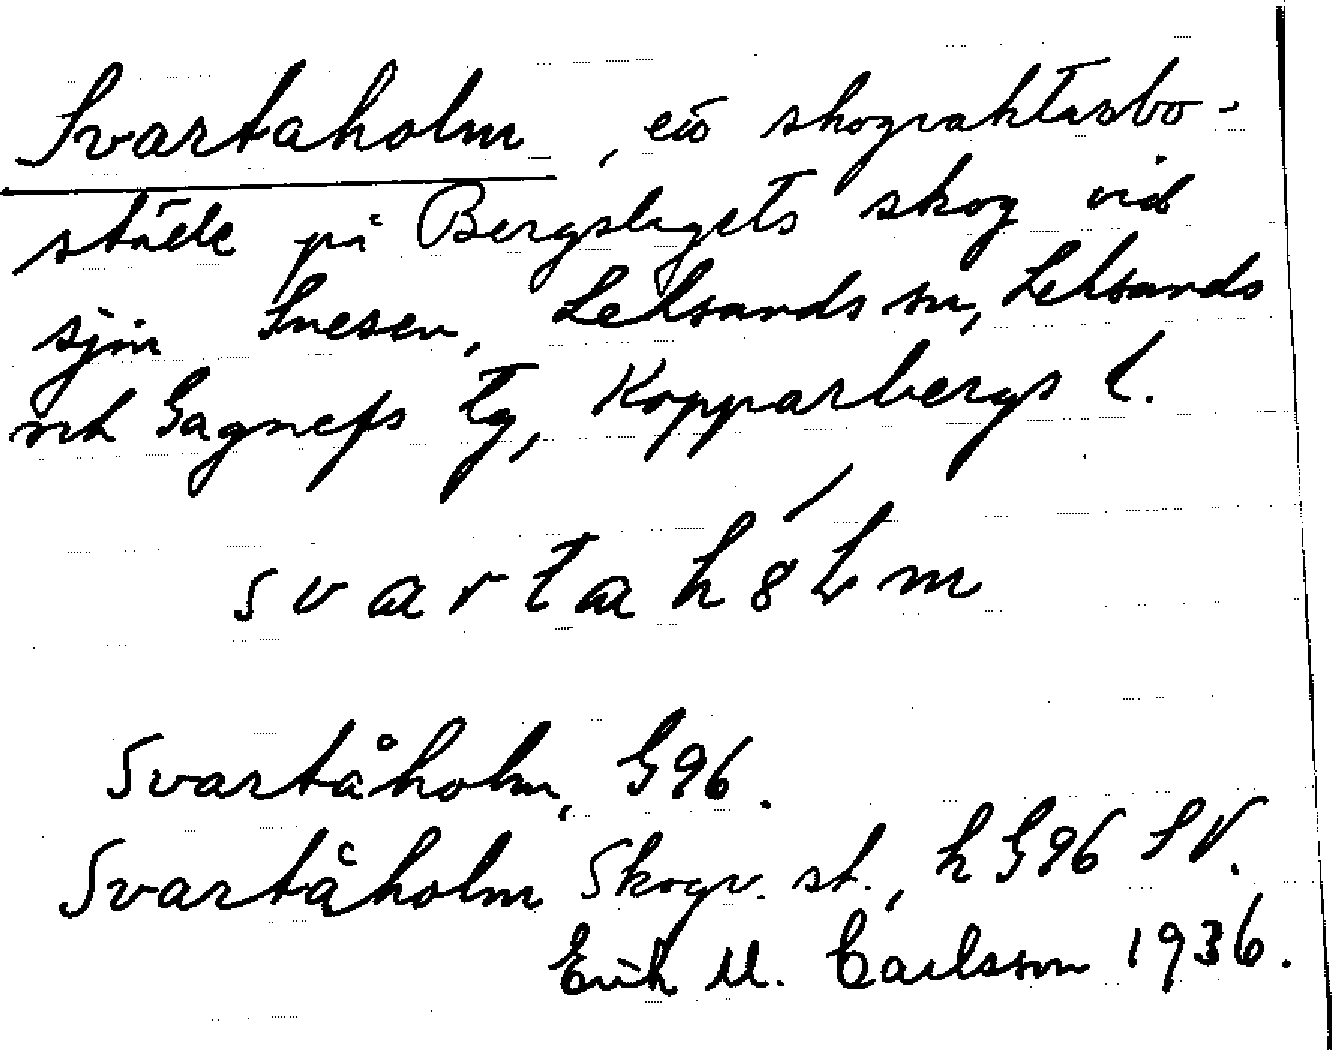 Svartaholm, ett skogvaktarbo-
ställe på Bergslagets skog vid
sjön Snesen, Leksands sn, Leksands
och Gagnefs tg, Kopparbergs l.
svartahólm
Svartåholm, G96.
Svartåholm Skogv. st., h G96 SV.
Erik M. Carlsson 1936.